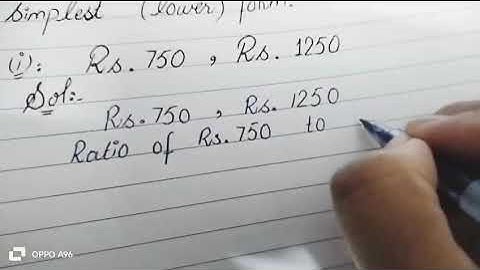 simplest (lower) form.
(i): Rs. 750 , Rs. 1250
Sol:-
Rs. 750 , Rs. 1250
Ratio of Rs. 750 to
OPPO A96